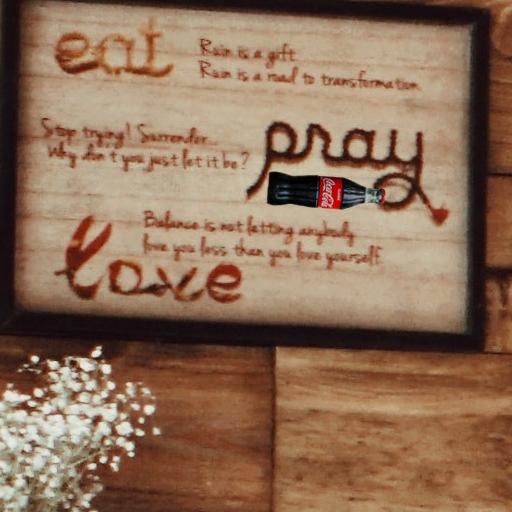 eat
Ruin is a gift
Ruin is a road to transformation
Stop trying! Surrender...
Why don't you just let it be?
pray
Coca-Cola
Balance is not letting anybody
love you less than you love yourself.
love